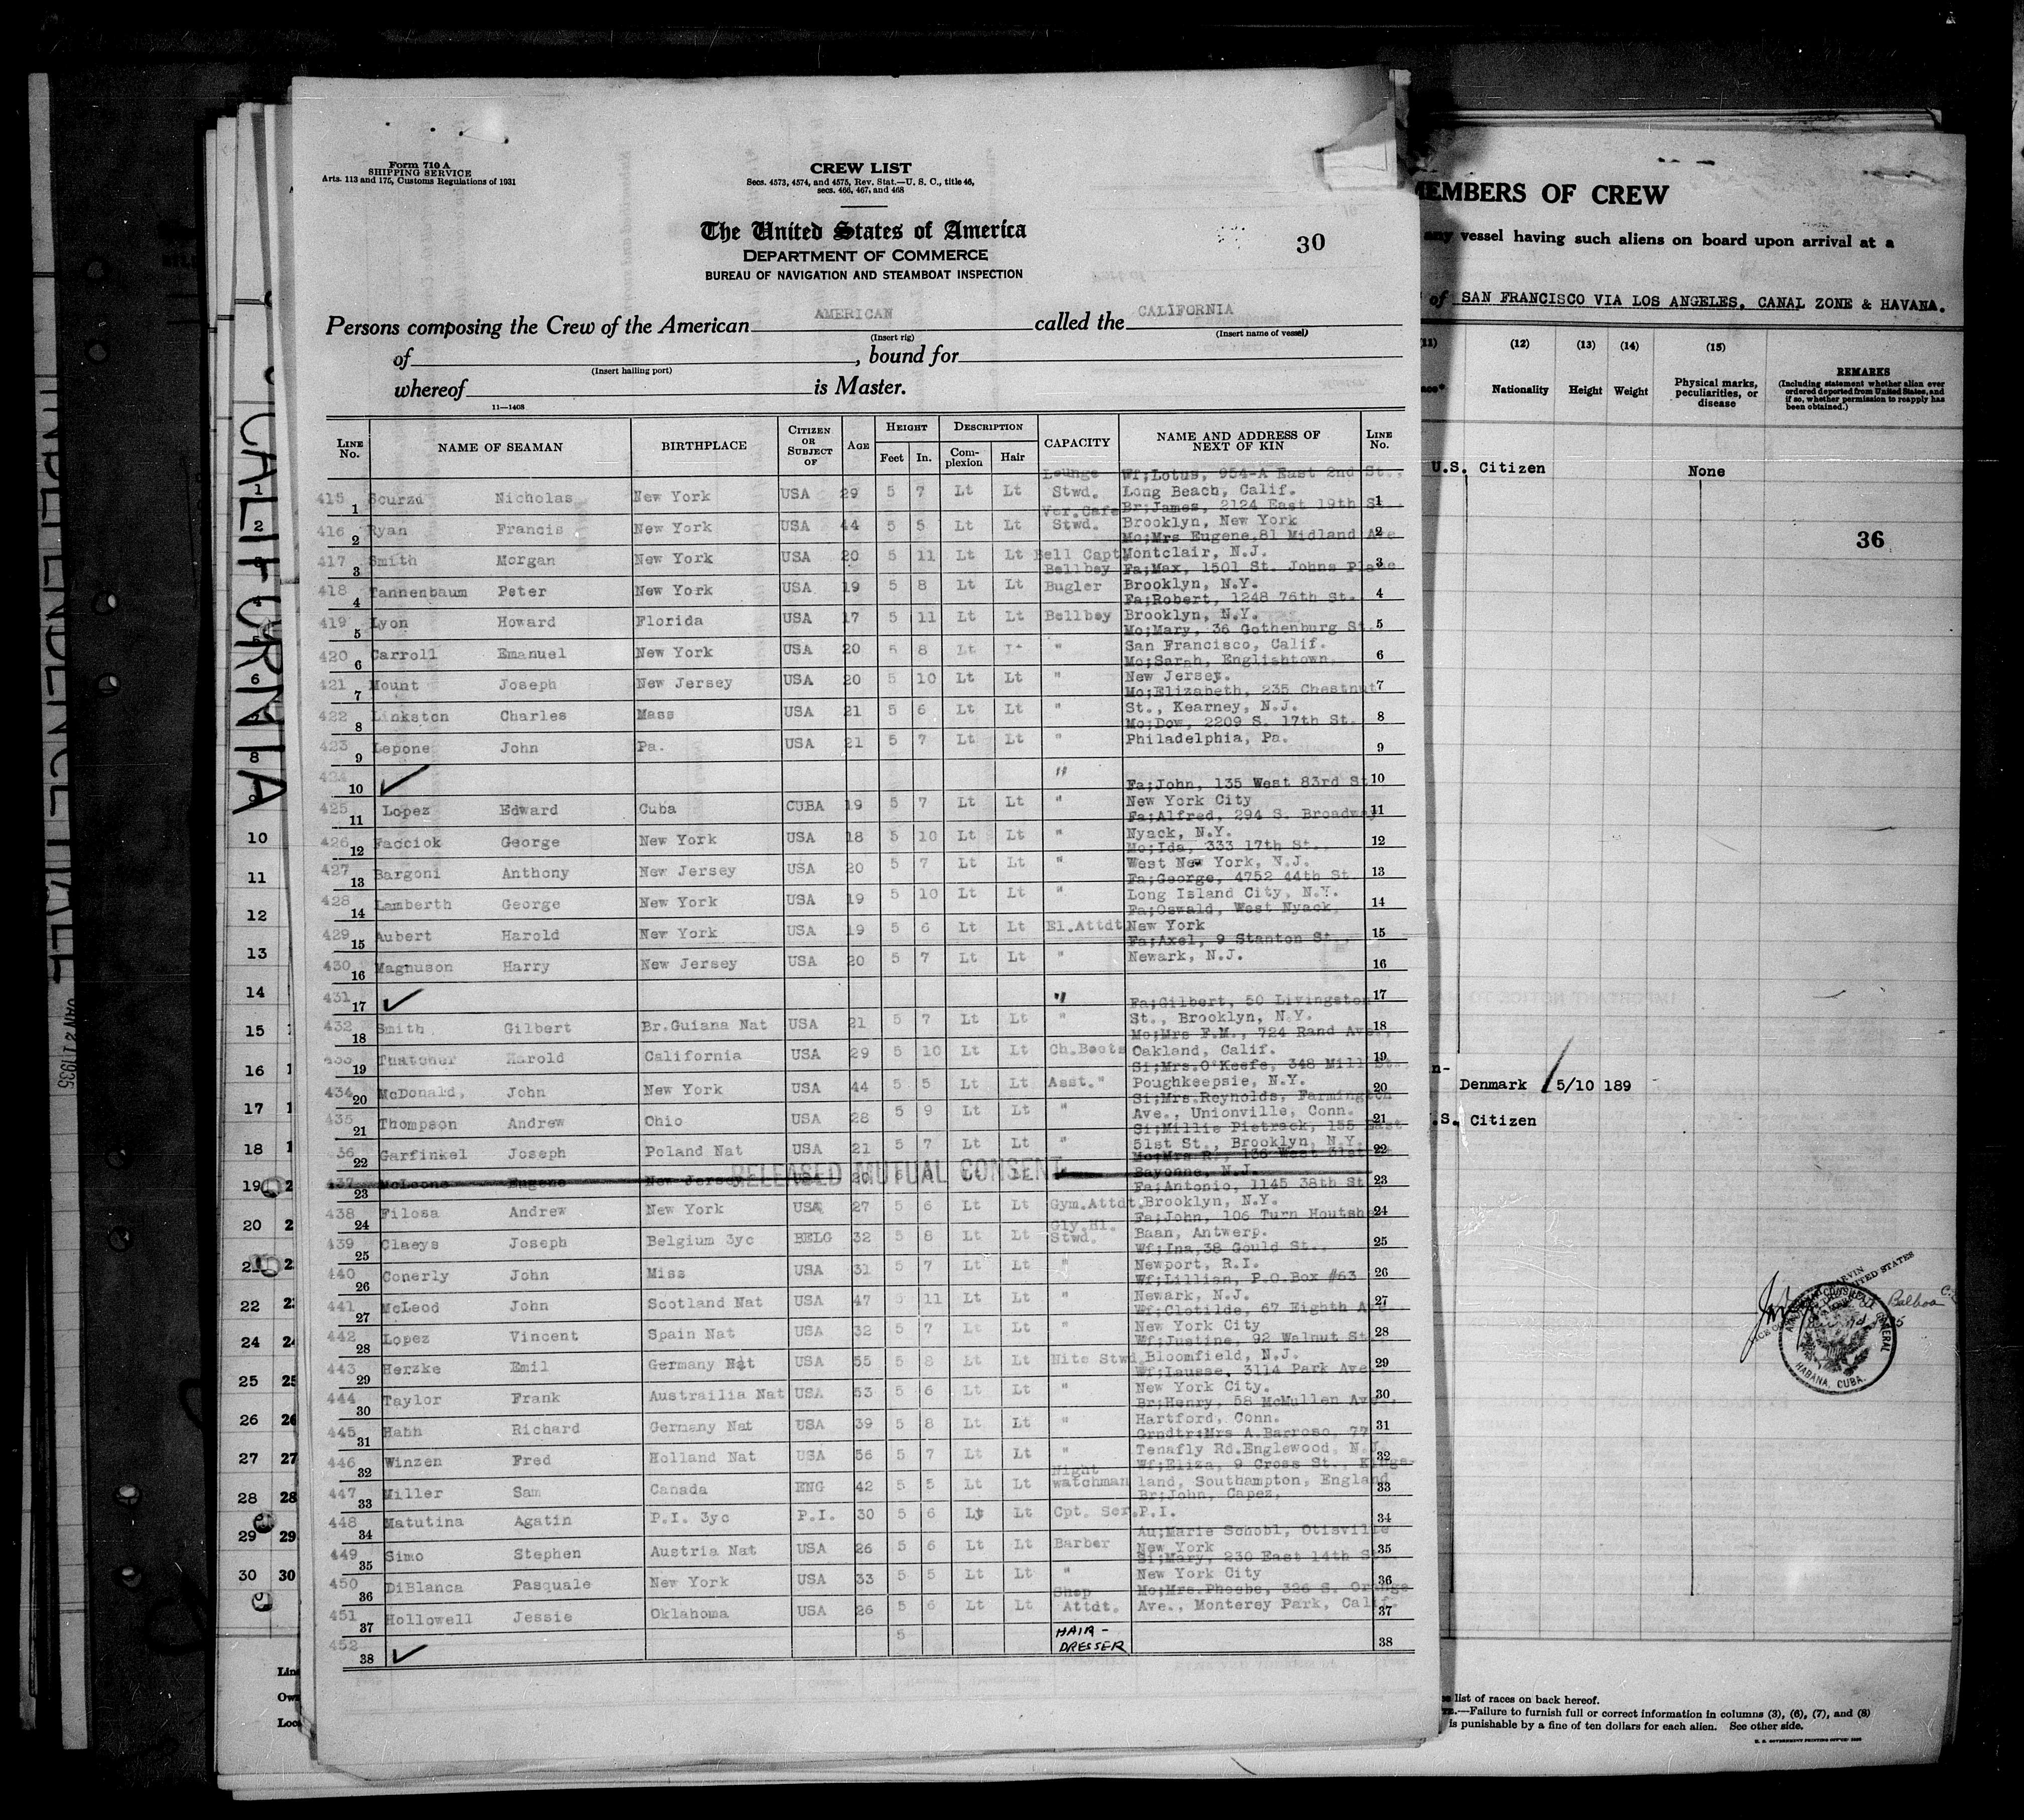 Form 710 A
SHIPPING SERVICE
Arts. 113 and 175, Customs Regulations of 1931
CREW LIST
Secs. 4573, 4574, and 4575, Rev. Stat.—U. S. C., title 46,
secs. 466, 467, and 468
The United States of America
DEPARTMENT OF COMMERCE
BUREAU OF NAVIGATION AND STEAMBOAT INSPECTION
30
Persons composing the Crew of the American AMERICAN called the CALIFORNIA
(Insert rig) (Insert name of vessel)
of , bound for
(Insert hailing port)
whereof is Master.
11—1408
LINE No. NAME OF SEAMAN BIRTHPLACE CITIZEN OR SUBJECT OF AGE HEIGHT Feet In. DESCRIPTION Complexion Hair CAPACITY NAME AND ADDRESS OF NEXT OF KIN LINE No.
415 1 Scurzd Nicholas New York USA 29 5 7 Lt Lt Lounge Stwd. Wf;Lotus, 954-A East 2nd St., Long Beach, Calif. 1
416 2 Ryan Francis New York USA 44 5 5 Lt Lt Ver.Cafe Stwd. Br;James, 2124 East 19th St. Brooklyn, New York 2
417 3 Smith Morgan New York USA 20 5 11 Lt Lt Bell Capt Mo;Mrs Eugene,81 Midland Ave Montclair, N.J. 3
418 4 Tannenbaum Peter New York USA 19 5 8 Lt Lt Bellboy Bugler Fa;Max, 1501 St. Johns Place Brooklyn, N.Y. 4
419 5 Lyon Howard Florida USA 17 5 11 Lt Lt Bellboy Fa;Robert, 1248 76th St. Brooklyn, N.Y. 5
420 6 Carroll Emanuel New York USA 20 5 8 Lt Lt " Mo;Mary, 36 Gothenburg St. San Francisco, Calif. 6
421 7 Mount Joseph New Jersey USA 20 5 10 Lt Lt " Mo;Sarah, Englishtown, New Jersey. 7
422 8 Linkston Charles Mass USA 21 5 6 Lt Lt " Mo;Elizabeth, 235 Chestnut St., Kearney, N.J. 8
423 9 Lepone John Pa. USA 21 5 7 Lt Lt " Mo;Dow, 2209 S. 17th St. Philadelphia, Pa. 9
424 10 ✓ " 10
425 11 Lopez Edward Cuba CUBA 19 5 7 Lt Lt " Fa;John, 135 West 83rd St New York City 11
426 12 Facciok George New York USA 18 5 10 Lt Lt " Fa;Alfred, 294 S. Broadway Nyack, N.Y. 12
427 13 Bargoni Anthony New Jersey USA 20 5 7 Lt Lt " Mo;Ida, 333 17th St. West New York, N.J. 13
428 14 Lamberth George New York USA 19 5 10 Lt Lt " Fa;George, 4752 44th St. Long Island City, N.Y. 14
429 15 Aubert Harold New York USA 19 5 6 Lt Lt El.Attdt Fa;Oswald, West Nyack, New York 15
430 16 Magnuson Harry New Jersey USA 20 5 7 Lt Lt " Fa;Axel, 9 Stanton St., Newark, N.J. 16
431 17 ✓ " 17
432 18 Smith Gilbert Br.Guiana Nat USA 21 5 7 Lt Lt " Fa;Gilbert, 50 Livingston St., Brooklyn, N.Y. 18
433 19 Thatcher Harold California USA 29 5 10 Lt Lt Ch.Boots Mo;Mrs F.M., 724 Rand Ave., Oakland, Calif. 19
434 20 McDonald, John New York USA 44 5 5 Lt Lt Asst." Si;Mrs.O'Keefe, 348 Mill St. Poughkeepsie, N.Y. 20
435 21 Thompson Andrew Ohio USA 28 5 9 Lt Lt " Si;Mrs.Reynolds, Farmington Ave., Unionville, Conn. 21
436 22 Garfinkel Joseph Poland Nat USA 21 5 7 Lt Lt " Si;Millie Pietrack, 155 East 51st St., Brooklyn, N.Y. 22
437 23 McLeone Eugene New Jersey USA 20 RELEASED MUTUAL CONSENT " Mo;Mrs R., 136 West 31st Bayonne, N.J. 23
438 24 Filosa Andrew New York USA 27 5 6 Lt Lt Gym.Attdt. Fa;Antonio, 1145 38th St. Brooklyn, N.Y. 24
439 25 Claeys Joseph Belgium 3yc BELG 32 5 8 Lt Lt Gly.Hl. Stwd. Fa;John, 106 Turn Houtshe Baan, Antwerp. 25
440 26 Conerly John Miss USA 31 5 7 Lt Lt " Wf;Ina,38 Gould St., Newport, R.I. 26
441 27 McLeod John Scotland Nat USA 47 5 11 Lt Lt " Wf;Lillian, P.O.Box #63 Newark, N.J. 27
442 28 Lopez Vincent Spain Nat USA 32 5 7 Lt Lt " Wf;Clotilde, 67 Eighth Av. New York City 28
443 29 Herzke Emil Germany Nat USA 55 5 8 Lt Lt Nite Stwd. Wf;Justine, 92 Walnut St Bloomfield, N.J. 29
444 30 Taylor Frank Austrailia Nat USA 53 5 6 Lt Lt " Wf;Lausse, 3114 Park Ave New York City. 30
445 31 Hahn Richard Germany Nat USA 39 5 8 Lt Lt " Br;Henry, 58 McMullen Ave., Hartford, Conn. 31
446 32 Winzen Fred Holland Nat USA 56 5 7 Lt Lt " Grndtr;Mrs A.Barroso, 77 Tenafly Rd.Englewood, N.J. 32
447 33 Miller Sam Canada ENG 42 5 5 Lt Lt Night watchman Wf;Eliza, 9 Cross St., Kings- land, Southampton, England 33
448 34 Matutina Agatin P.I. 3yc P.I. 30 5 6 Lt Lt Cpt. Ser. Br;John, Capez, P.I. 34
449 35 Simo Stephen Austria Nat USA 26 5 6 Lt Lt Barber Au;Marie Schobl, Otisville New York 35
450 36 DiBlanca Pasquale New York USA 33 5 5 Lt Lt " Si;Mary, 230 East 14th St. New York City 36
451 37 Hollowell Jessie Oklahoma USA 26 5 6 Lt Lt Shop Attdt. Mo;Mrs.Phoebe, 326 S. Orange Ave., Monterey Park, Calif. 37
452 38 ✓ 5 HAIR-DRESSER 38
CALIFORNIA
JAN 21 1935
MEMBERS OF CREW
any vessel having such aliens on board upon arrival at a
of SAN FRANCISCO VIA LOS ANGELES, CANAL ZONE & HAVANA.
(11) (12) (13) (14) (15)
Nationality Height Weight Physical marks, peculiarities, or disease REMARKS
(Including statement whether alien ever ordered deported from United States, and if so, whether permission to reapply has been obtained.)
U.S. Citizen None
36
Denmark 5/10 189
.S. Citizen
Balboa
AMERICAN CONSULATE GENERAL
HABANA, CUBA.
list of races on back hereof.
—Failure to furnish full or correct information in columns (3), (6), (7), and (8)
is punishable by a fine of ten dollars for each alien. See other side.